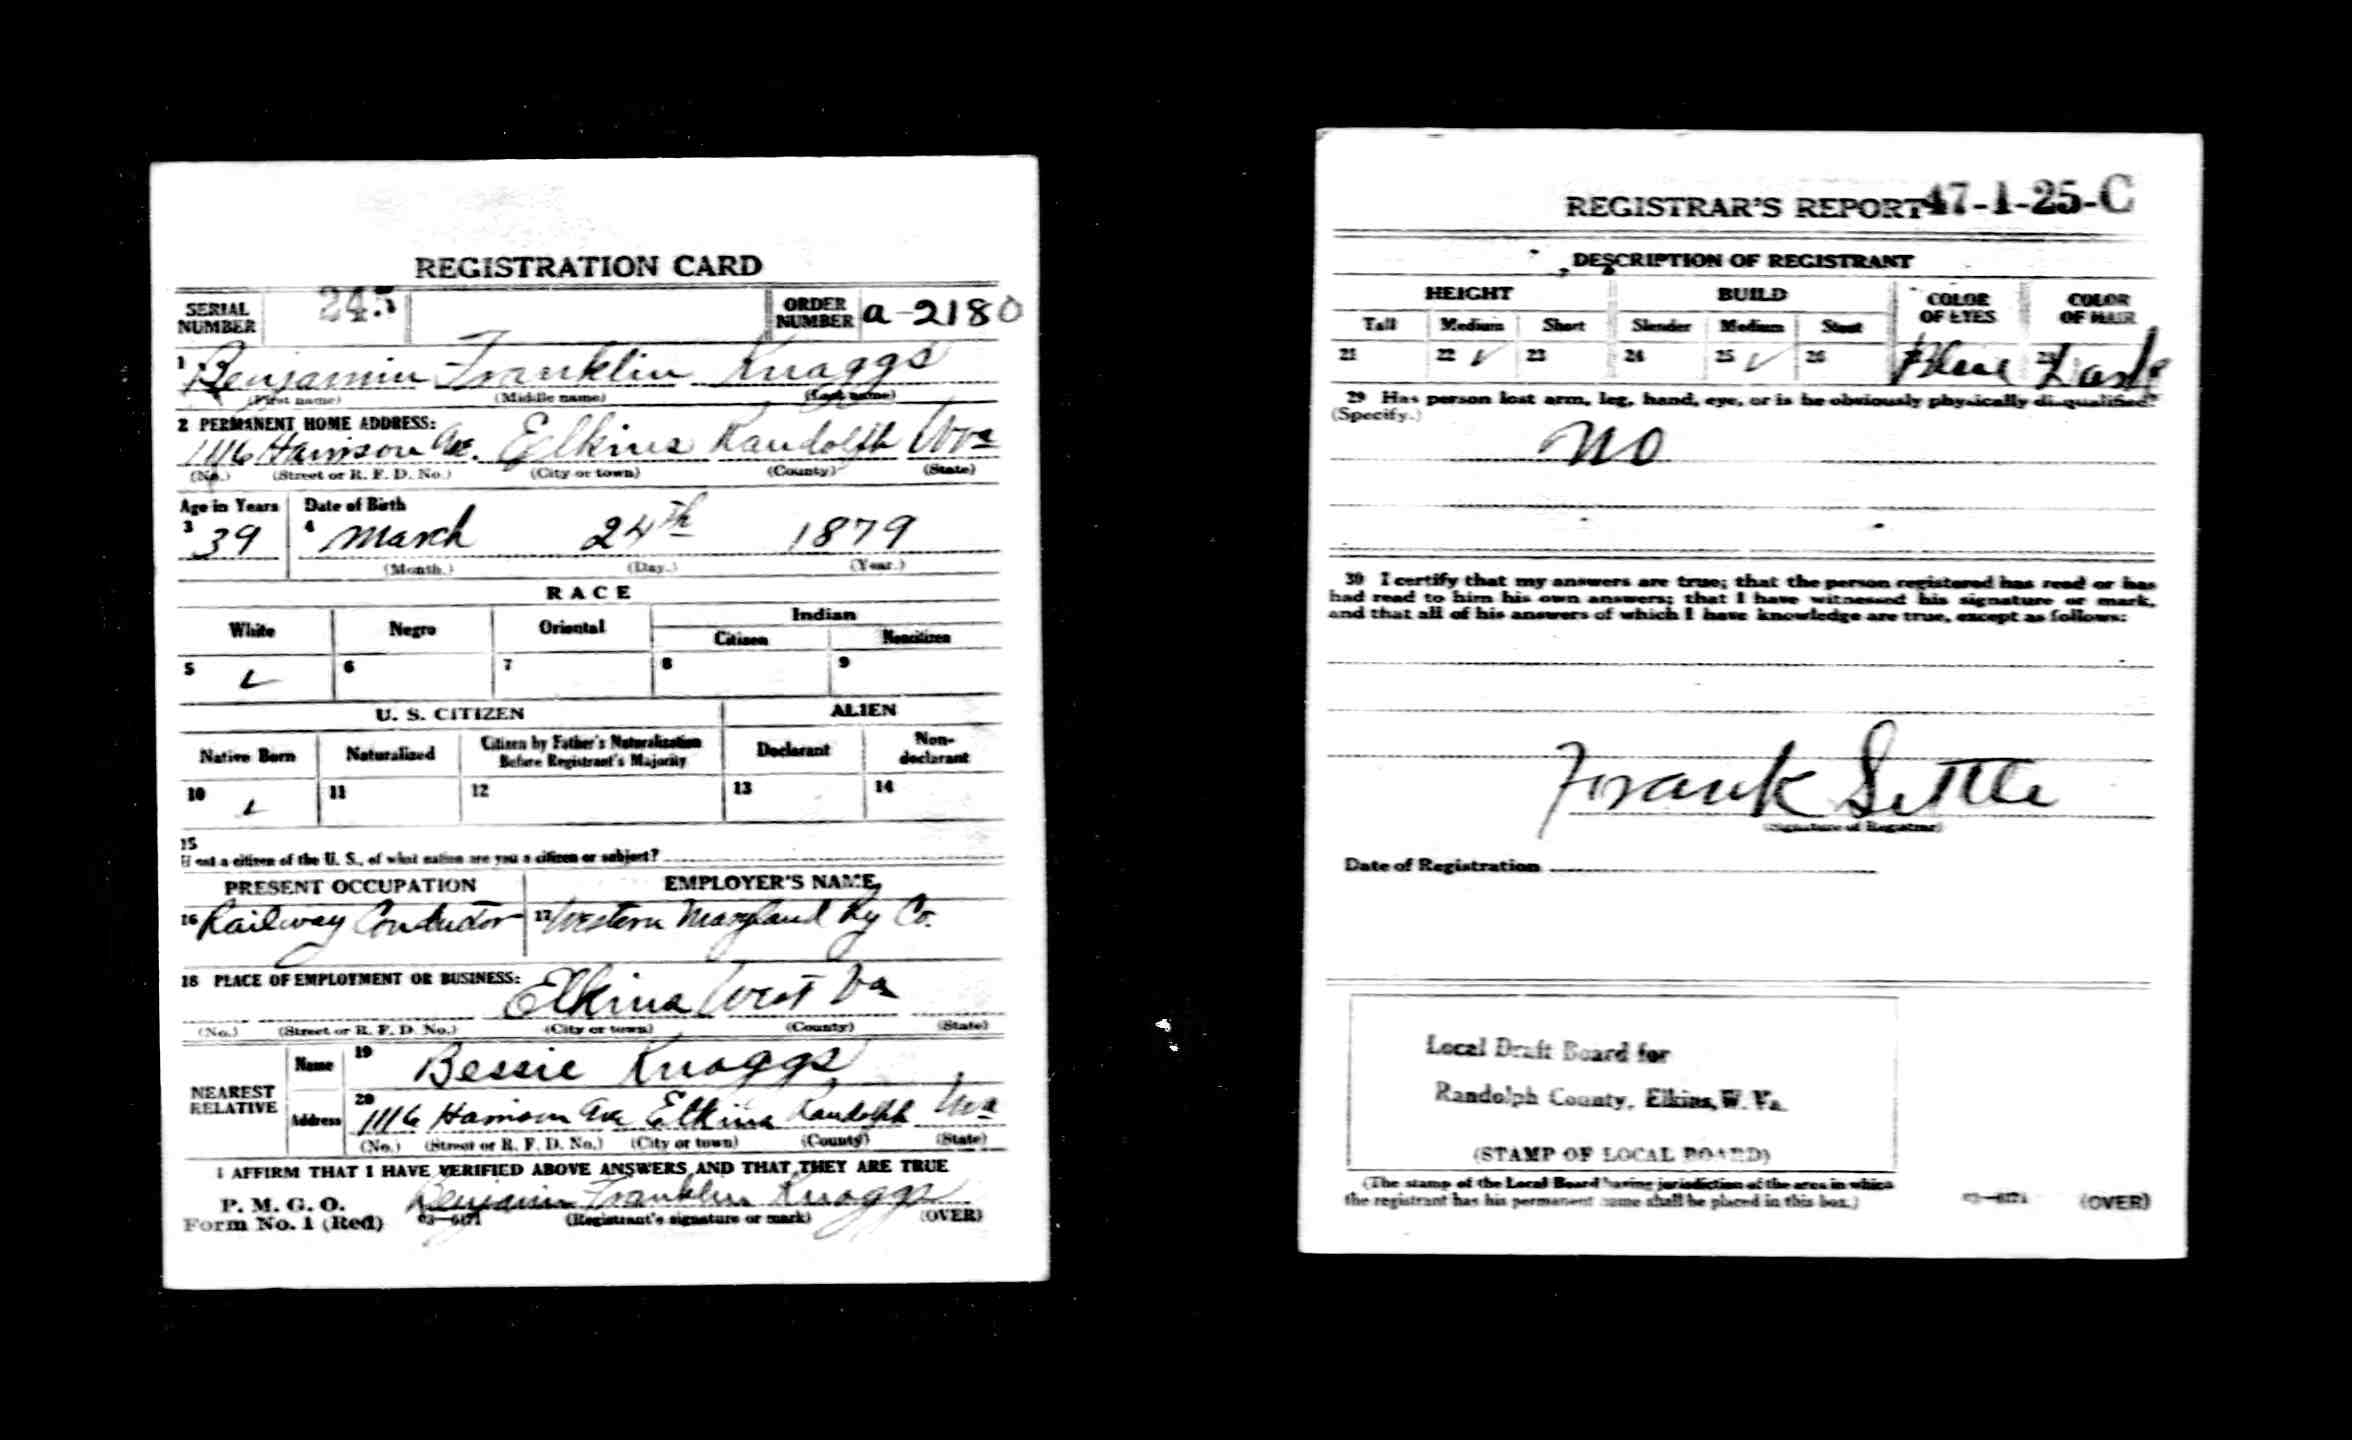 REGISTRATION CARD
SERIAL NUMBER 245 ORDER NUMBER a-2180
1 Benjamin Franklin Knaggs
(First name) (Middle name) (Last name)
2 PERMANENT HOME ADDRESS:
1116 Harrison Ave. Elkins Randolph Wva
(No.) (Street or R. F. D. No.) (City or town) (County) (State)
Age in Years Date of Birth
3 39 4 March 24th 1879
(Month.) (Day.) (Year.)
RACE
White Negro Oriental Indian
Citizen Noncitizen
5 ✓ 6 7 8 9
U. S. CITIZEN ALIEN
Native Born Naturalized Citizen by Father's Naturalization Before Registrant's Majority Declarant Non-declarant
10 ✓ 11 12 13 14
15
If not a citizen of the U. S., of what nation are you a citizen or subject?
PRESENT OCCUPATION EMPLOYER'S NAME
16 Railway Conductor 17 Western Maryland Ry Co.
18 PLACE OF EMPLOYMENT OR BUSINESS:
Elkins West Va
(No.) (Street or R. F. D. No.) (City or town) (County) (State)
NEAREST RELATIVE
Name 19 Bessie Knaggs
Address 20 1116 Harrison Ave Elkins Randolph Wva
(No.) (Street or R. F. D. No.) (City or town) (County) (State)
I AFFIRM THAT I HAVE VERIFIED ABOVE ANSWERS AND THAT THEY ARE TRUE
P. M. G. O.
Form No. 1 (Red) 03—6171 Benjamin Franklin Knaggs
(Registrant's signature or mark) (OVER)
REGISTRAR'S REPORT 47-1-25-C
DESCRIPTION OF REGISTRANT
HEIGHT BUILD COLOR OF EYES COLOR OF HAIR
Tall Medium Short Slender Medium Stout
21 22 ✓ 23 24 25 ✓ 26 Blue 28 Dark
29 Has person lost arm, leg, hand, eye, or is he obviously physically disqualified?
(Specify.)
No
30 I certify that my answers are true; that the person registered has read or has
had read to him his own answers; that I have witnessed his signature or mark,
and that all of his answers of which I have knowledge are true, except as follows:
Frank Settle
(Signature of Registrar)
Date of Registration
Local Draft Board for
Randolph County, Elkins, W. Va.
(STAMP OF LOCAL BOARD)
(The stamp of the Local Board having jurisdiction of the area in which
the registrant has his permanent home shall be placed in this box.)
03—6171 (OVER)